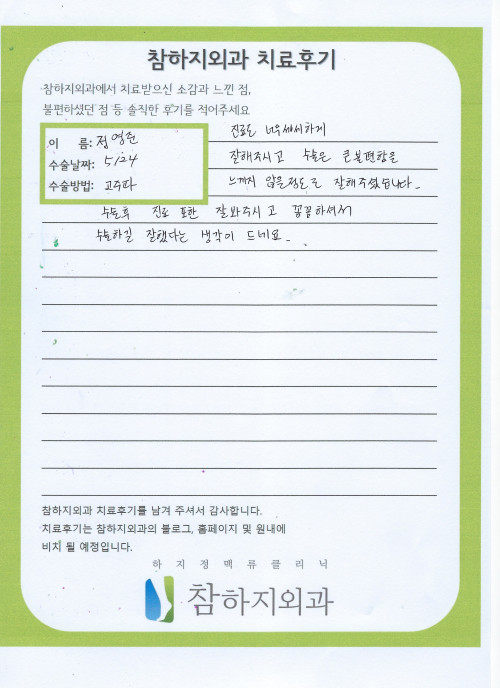 참하지외과 치료후기
참하지외과에서 치료받으신 소감과 느낀 점,
불편하셨던 점 등 솔직한 후기를 적어주세요
이 름: 정영준
수술날짜: 5/24
수술방법: 고주파
진료도 너무세세하게
잘해주시고 수술은 큰불편함은
느끼지 않을정도로 잘해주셨습니다.
수술후 진료 또한 잘봐주시고 꼼꼼하셔서
수술하길 잘했다는 생각이 드네요.
참하지외과 치료후기를 남겨 주셔서 감사합니다.
치료후기는 참하지외과의 블로그, 홈페이지 및 원내에
비치 될 예정입니다.
하지정맥류클리닉
참하지외과